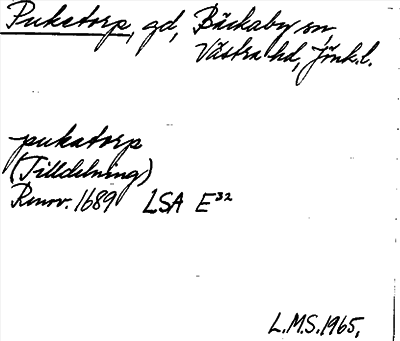 Puketorp, gd, Bäckaby sn
Västra hd, Jönk.l.
pukatorp
(Tilldelning)
Renov. 1689 LSA E³²
L.M.S. 1965.